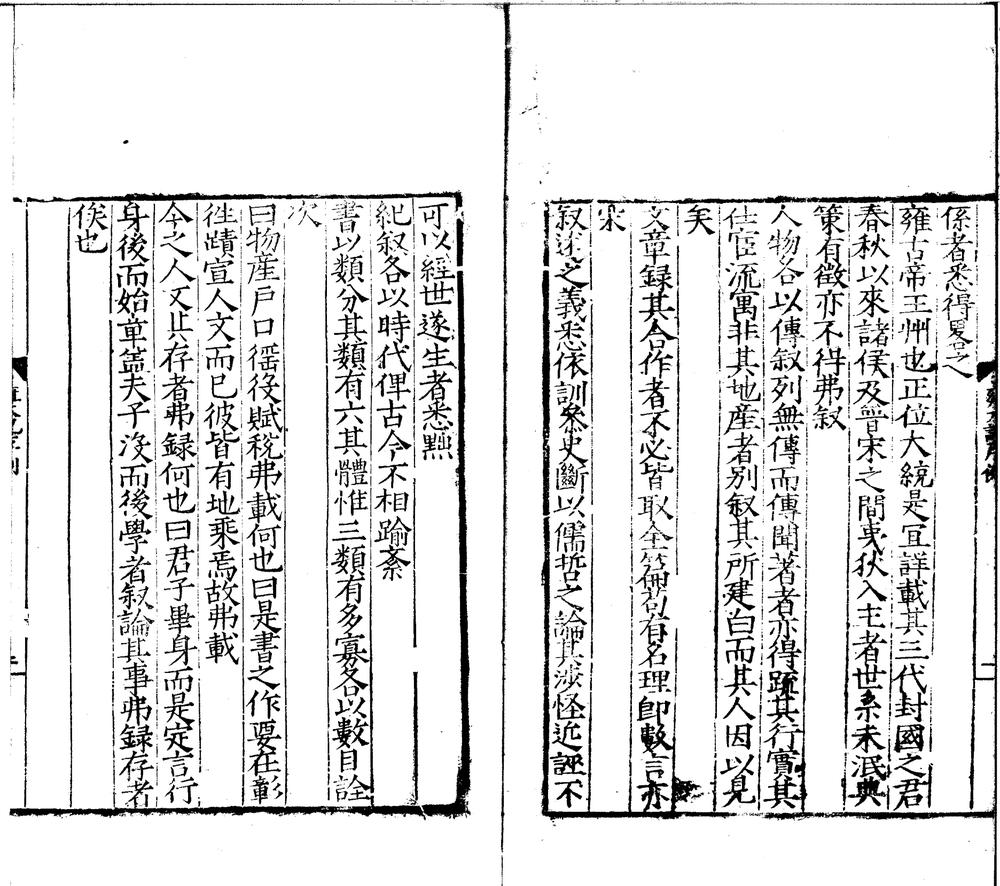 係者悉得畧之
雍古帝王州也正位大統是宜詳載其三代封國之君
春秋以來諸侯及晉宋之間夷狄入主者世系未泯典
策有徵亦不得弗叙
人物各以傳叙列無傳而傳聞著者亦得疏其行實其
仕宦流寓非其地産者別叙其所建白而其人因以見
矣
文章録其合作者不必皆取全篇若有名理卽數言亦
宋
叙述之義悉依訓叅史斷以儒哲之論其涉怪近誣不
可以經世遂生者悉黜
紀叙各以時代俾古今不相踰紊
書以類分其類有六其體惟三類有多寡各以數目詮
次
曰物産戸口徭役賦稅弗載何也曰是書之作要在彰
徃蹟宣人文而已彼皆有地乘焉故弗載
今之人又其存者弗録何也曰君子畢身而是定言行
身後而始章盖夫子沒而後學者叙論其事弗録存者
俟也